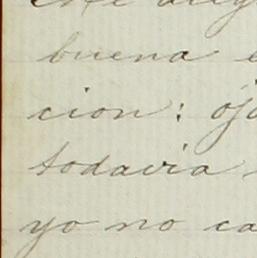 buena
cion: oj
todavia
yo no ca